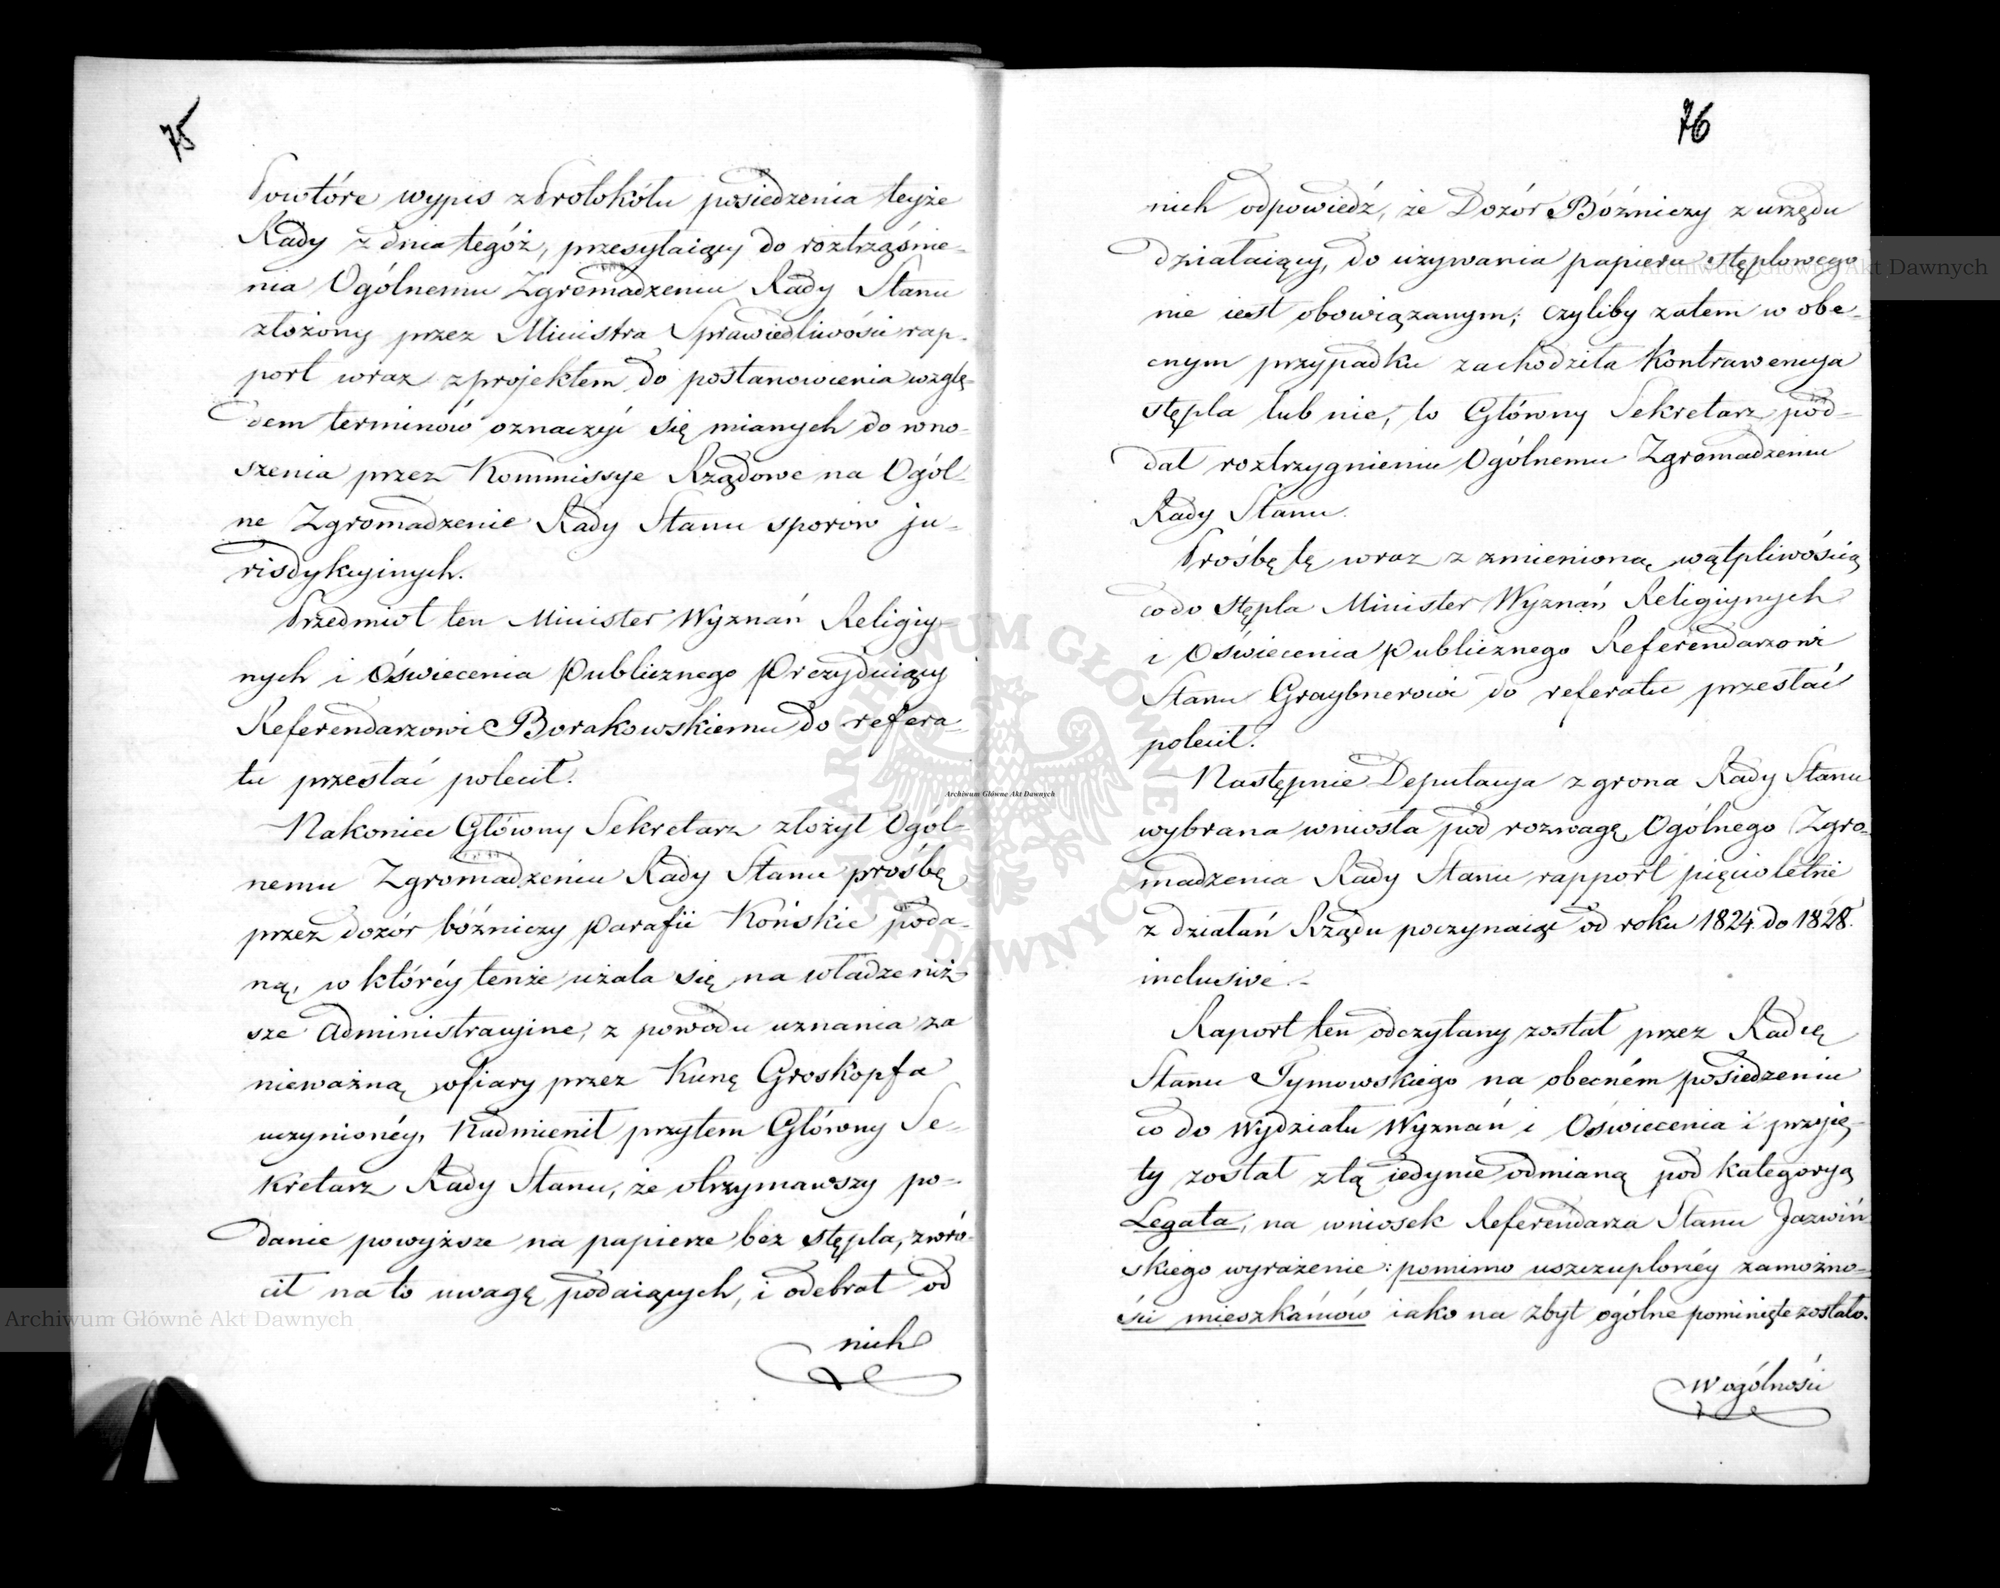 75
Powtóre wypis z Protokółu posiedzenia teyże
Rady z dnia tegóż, przesyłaiący do roztrząśnie-
nia Ogólnemu Zgromadzeniu Rady Stanu
złożony przez Ministra Sprawiedliwości rap-
port wraz z projektem do postanowienia wzglę-
dem terminów oznaczyć się mianych do wno-
szenia przez Kommissye Rządowe na Ogól-
ne Zgromadzenie Rady Stanu sporów ju-
risdykcyinych.
Przedmiot ten Minister Wyznań Religiy-
nych i Oświecenia Publicznego Prezyduiący
Referendarzowi Borakowskiemu do refera-
tu przesłać polecił.
Nakoniec Główny Sekretarz złożył Ogól-
nemu Zgromadzeniu Rady Stanu prośbę
przez dozór bóżniczy Parafii Końskie poda-
ną, w któréy tenże użala się na władze niż-
sze administracyine, z powodu uznania za
nieważną ofiary przez Kunę Groskopfa
uczynionéy, Nadmienił przytem Główny Se-
kretarz Rady Stanu, że otrzymawszy po-
danie powyższe na papierze bez stępla, zwró-
cił na to uwagę podaiących, i odebrał od
nich
76
nich odpowiedź, że Dozór Bóżniczy z urzędu
działaiący, do używania papieru stęplowego
nie iest obowiązanym; czyliby zatem w obe-
cnym przypadku zachodziła Kontrawencya
stępla lub nie, to Główny Sekretarz pod-
dał roztrzygnieniu Ogólnemu Zgromadzeniu
Rady Stanu.
Prośbę tę wraz z zmienioną wątpliwością
co do stępla Minister Wyznań Religiynych
i Oświecenia Publicznego Referendarzowi
Stanu Graybnerowi do referatu przesłać
polecił.
Następnie Deputacya z grona Rady Stanu
wybrana wniosła pod rozwagę Ogólnego Zgro-
madzenia Rady Stanu rapport pięcioletni
z działań Rządu poczynaiąc od roku 1824. do 1828.
inclusive.-
Raport ten odczytany został przez Radcę
Stanu Tymowskiego na obecném posiedzeniu
co do Wydziału Wyznań i Oświecenia i przyię-
ty został z tą iedynie odmianą pod kategoryą
Legata, na wniosek Referendarza Stanu Jazwiń-
skiego wyrażenie: pomimo uszczuplonéy zamożno-
ści mieszkańców iako na zbyt ogólne pominięte zostało.
W ogólności
Archiwum Główne Akt Dawnych
Archiwum Główne Akt Dawnych
Archiwum Główne Akt Dawnych
ARCHIWUM GŁÓWNE AKT DAWNYCH